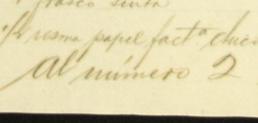 frasco tinta
1/2 resma papel factª chica
al número 2